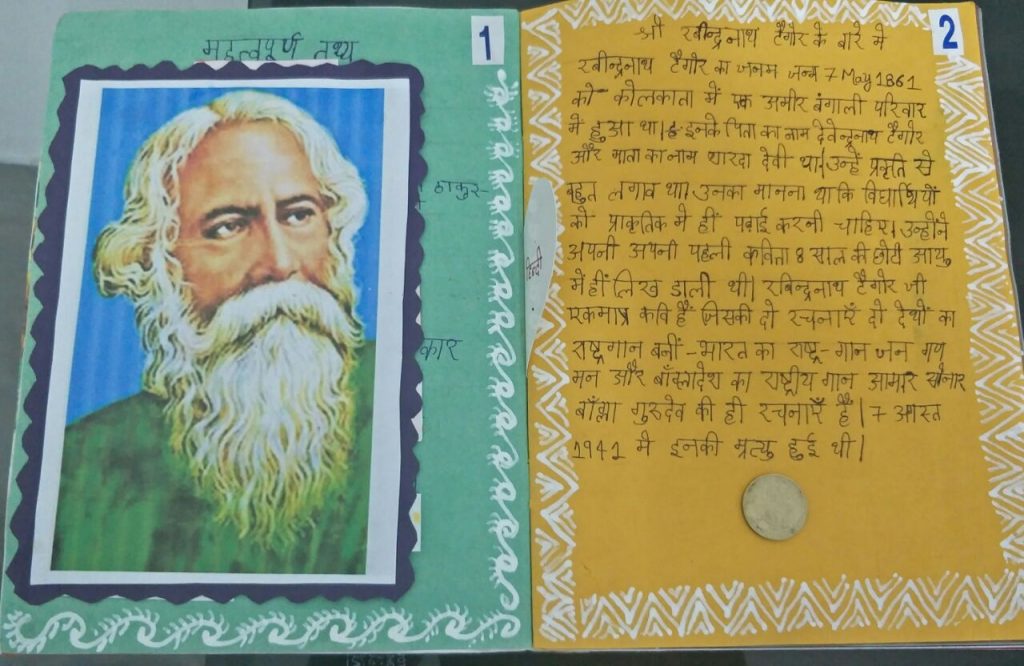 1
महत्वपूर्ण तथ्य
ठाकुर-
कार
2
श्री रबीन्द्रनाथ टैगोर के बारे में
रबीन्द्रनाथ टैगोर का जनम जन्म 7 May 1861
को कोलकाता में एक अमीर बंगाली परिवार
में हुआ था। इनके पिता का नाम देवेन्द्रनाथ टैगोर
और माता का नाम शारदा देवी था। उन्हें प्रकृति से
बहुत लगाव था। उनका मानना था कि विद्यार्थियों
को प्राकृतिक में हीं पढ़ाई करनी चाहिए। उन्होंने
अपनी अपनी पहली कविता 8 साल की छोटी आयु
में हीं लिख डाली थी। रबिन्द्रनाथ टैगोर जी
एकमात्र कवि हैं जिसकी दो रचनाएँ दो देशों का
राष्ट्रगान बनीं - भारत का राष्ट्र-गान जन गण
मन और बाँग्लादेश का राष्ट्रीय गान आमार सोनार
बाँग्ला गुरुदेव की ही रचनाएँ हैं। 7 अगस्त
1941 में इनकी मृत्यु हुई थी।
हिन्दी